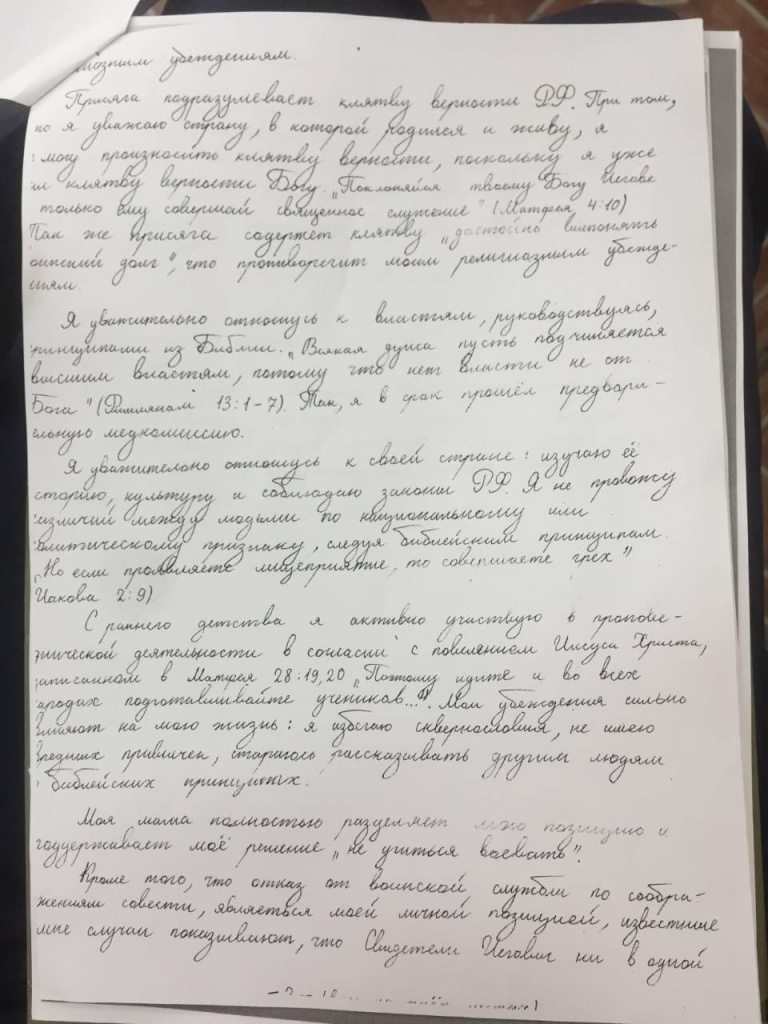 иозным убеждениям.
Присяга подразумевает клятву верности РФ. При том,
но я уважаю страну, в которой родился и живу, я
могу произносить клятву верности, поскольку я уже
л клятву верности Богу. „Поклоняйся твоему Богу Иегове
только ему совершай священное служение" (Матфея 4:10)
Так же присяга содержет клятву „достойно выполнять
оинский долг", что противоречит моим религиозным убежде-
иям.
Я уважительно отношусь к властям, руководствуясь,
ринципами из Библии. „Всякая душа пусть подчиняется
высшим властям, потому что нет власти не от
Бога" (Римлянам 13:1-7). Так, я в срок прошёл предвари-
ельную медкомиссию.
Я уважительно отношусь к своей стране: изучаю её
сторию, культуру и соблюдаю законы РФ. Я не провожу
азличий между людьми по национальному или
олитическому признаку, следуя библейским принципам.
„Но если проявляете лицеприятие, то совершаете грех"
Иакова 2:9)
С раннего детства я активно участвую в пропове-
днической деятельности в согласии с повелением Иисуса Христа,
записанном в Матфея 28:19,20 „Поэтому идите и во всех
народах подготавливайте учеников...". Мои убеждения сильно
влияют на мою жизнь: я избегаю сквернословия, не имею
вредных привычек, стараюсь рассказывать другим людям
библейских принципах.
Моя мама полностью разделяет мою позицию и
поддерживает моё решение „не учиться воевать".
Кроме того, что отказ от воинской службы по сообра-
жениям совести, является моей личной позицией, известные
мне случаи показывают, что Свидетели Иеговы ни в одной